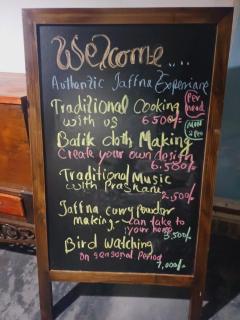 Welcome....
Authentic Jaffna Experience
Traditional Cooking
with us 6500/=
Per head
Min 2 Pax
Batik cloth Making
Create your own design
6,500/=
Traditional Music
with Prashane
2,500/=
Jaffna curry powder
making - can take to
your home
3,500/=
Bird watching
On seasonal Period
7,000/=